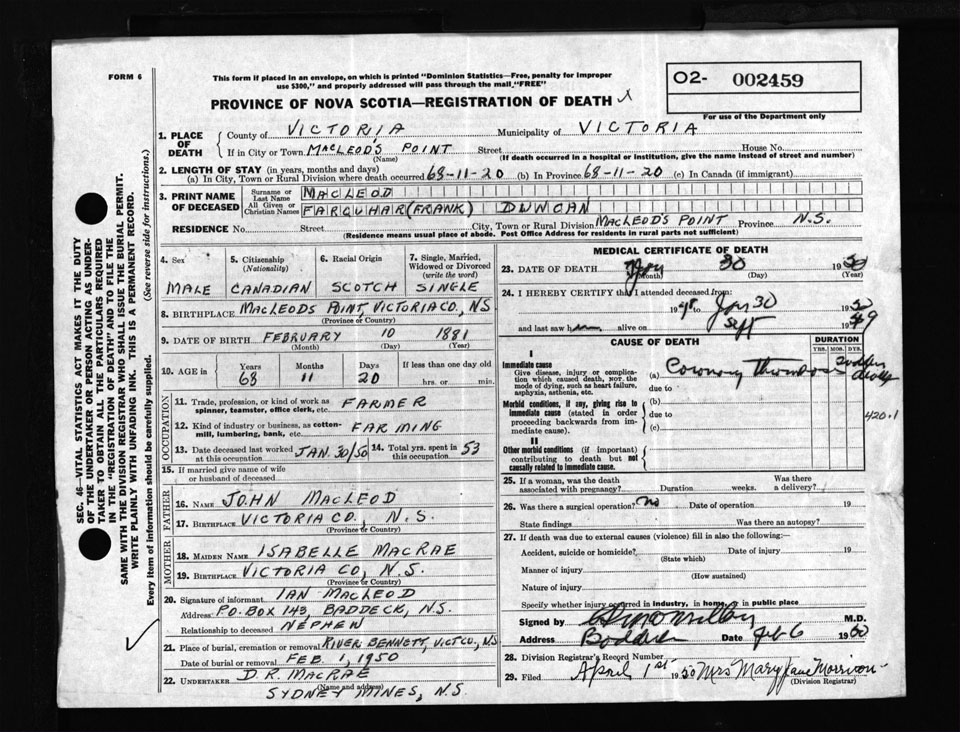 FORM 6
This form if placed in an envelope, on which is printed "Dominion Statistics—Free, penalty for improper
use $300," and properly addressed will pass through the mail "FREE"
O2- 002459
For use of the Department only
PROVINCE OF NOVA SCOTIA—REGISTRATION OF DEATH
1. PLACE OF DEATH
County of VICTORIA Municipality of VICTORIA
If in City or Town MACLEOD'S POINT Street House No.
(Name) (If death occurred in a hospital or institution, give the name instead of street and number)
2. LENGTH OF STAY (in years, months and days)
(a) In City, Town or Rural Division where death occurred 68-11-20 (b) In Province 68-11-20 (c) In Canada (if immigrant)
3. PRINT NAME OF DECEASED
Surname or Last Name MACLEOD
All Given or Christian Names FARQUHAR (FRANK) DUNCAN
RESIDENCE No. Street City, Town or Rural Division MACLEOD'S POINT Province N.S.
(Residence means usual place of abode. Post Office Address for residents in rural parts not sufficient)
4. Sex MALE
5. Citizenship (Nationality) CANADIAN
6. Racial Origin SCOTCH
7. Single, Married, Widowed or Divorced (write the word) SINGLE
8. BIRTHPLACE MACLEODS POINT, VICTORIA CO., NS
(Province or Country)
9. DATE OF BIRTH FEBRUARY 10 1881
(Month) (Day) (Year)
10. AGE in Years 68 Months 11 Days 20 If less than one day old
hrs. or min.
OCCUPATION
11. Trade, profession, or kind of work as spinner, teamster, office clerk, etc. FARMER
12. Kind of industry or business, as cotton-mill, lumbering, bank, etc. FARMING
13. Date deceased last worked at this occupation JAN. 30/50 14. Total yrs. spent in this occupation 53
15. If married give name of wife or husband of deceased
FATHER
16. NAME JOHN MACLEOD
17. BIRTHPLACE VICTORIA CO., N.S.
(Province or Country)
MOTHER
18. MAIDEN NAME ISABELLE MACRAE
19. BIRTHPLACE VICTORIA CO, N.S.
(Province or Country)
20. Signature of informant IAN MACLEOD
Address P.O. BOX 143, BADDECK, N.S.
Relationship to deceased NEPHEW
21. Place of burial, cremation or removal RIVER BENNETT, VICT CO, NS
Date of burial or removal FEB. 1, 1950
22. UNDERTAKER D.R. MACRAE
(Name and address)
SYDNEY MINES, N.S.
MEDICAL CERTIFICATE OF DEATH
23. DATE OF DEATH 30 1950
(Month) (Day) (Year)
24. I HEREBY CERTIFY that I attended deceased from:
19 Jan 30 1950
and last saw h alive on Sept 1949
CAUSE OF DEATH DURATION
YRS. MOS. DYS.
I
Immediate cause
Give disease, injury or complication which caused death, NOT the mode of dying, such as heart failure, asphyxia, asthenia, etc.
(a) Coronary Thrombosis
due to
Morbid conditions, if any, giving rise to immediate cause (stated in order proceeding backwards from immediate cause).
(b)
due to
(c)
420.1
II
Other morbid conditions (if important) contributing to death but not causally related to immediate cause.
25. If a woman, was the death associated with pregnancy? Duration weeks. Was there a delivery?
26. Was there a surgical operation? no Date of operation 19
State findings Was there an autopsy?
27. If death was due to external causes (violence) fill in also the following:—
Accident, suicide or homicide? Date of injury 19
(State which)
Manner of injury
(How sustained)
Nature of injury
Specify whether injury occurred in industry, in home, or in public place
Signed by M.D.
Address Baddeck Date Feb 6 1950
28. Division Registrar's Record Number
29. Filed April 1st 1950 Mrs Mary Jane Morrison
(Division Registrar)
SEC. 46—VITAL STATISTICS ACT MAKES IT THE DUTY
OF THE UNDERTAKER OR PERSON ACTING AS UNDER-
TAKER TO OBTAIN ALL THE PARTICULARS REQUIRED
IN THE "REGISTRATION OF DEATH" AND TO FILE THE
SAME WITH THE DIVISION REGISTRAR WHO SHALL ISSUE THE BURIAL PERMIT.
WRITE PLAINLY WITH UNFADING INK. THIS IS A PERMANENT RECORD.
Every item of information should be carefully supplied. (See reverse side for instructions.)